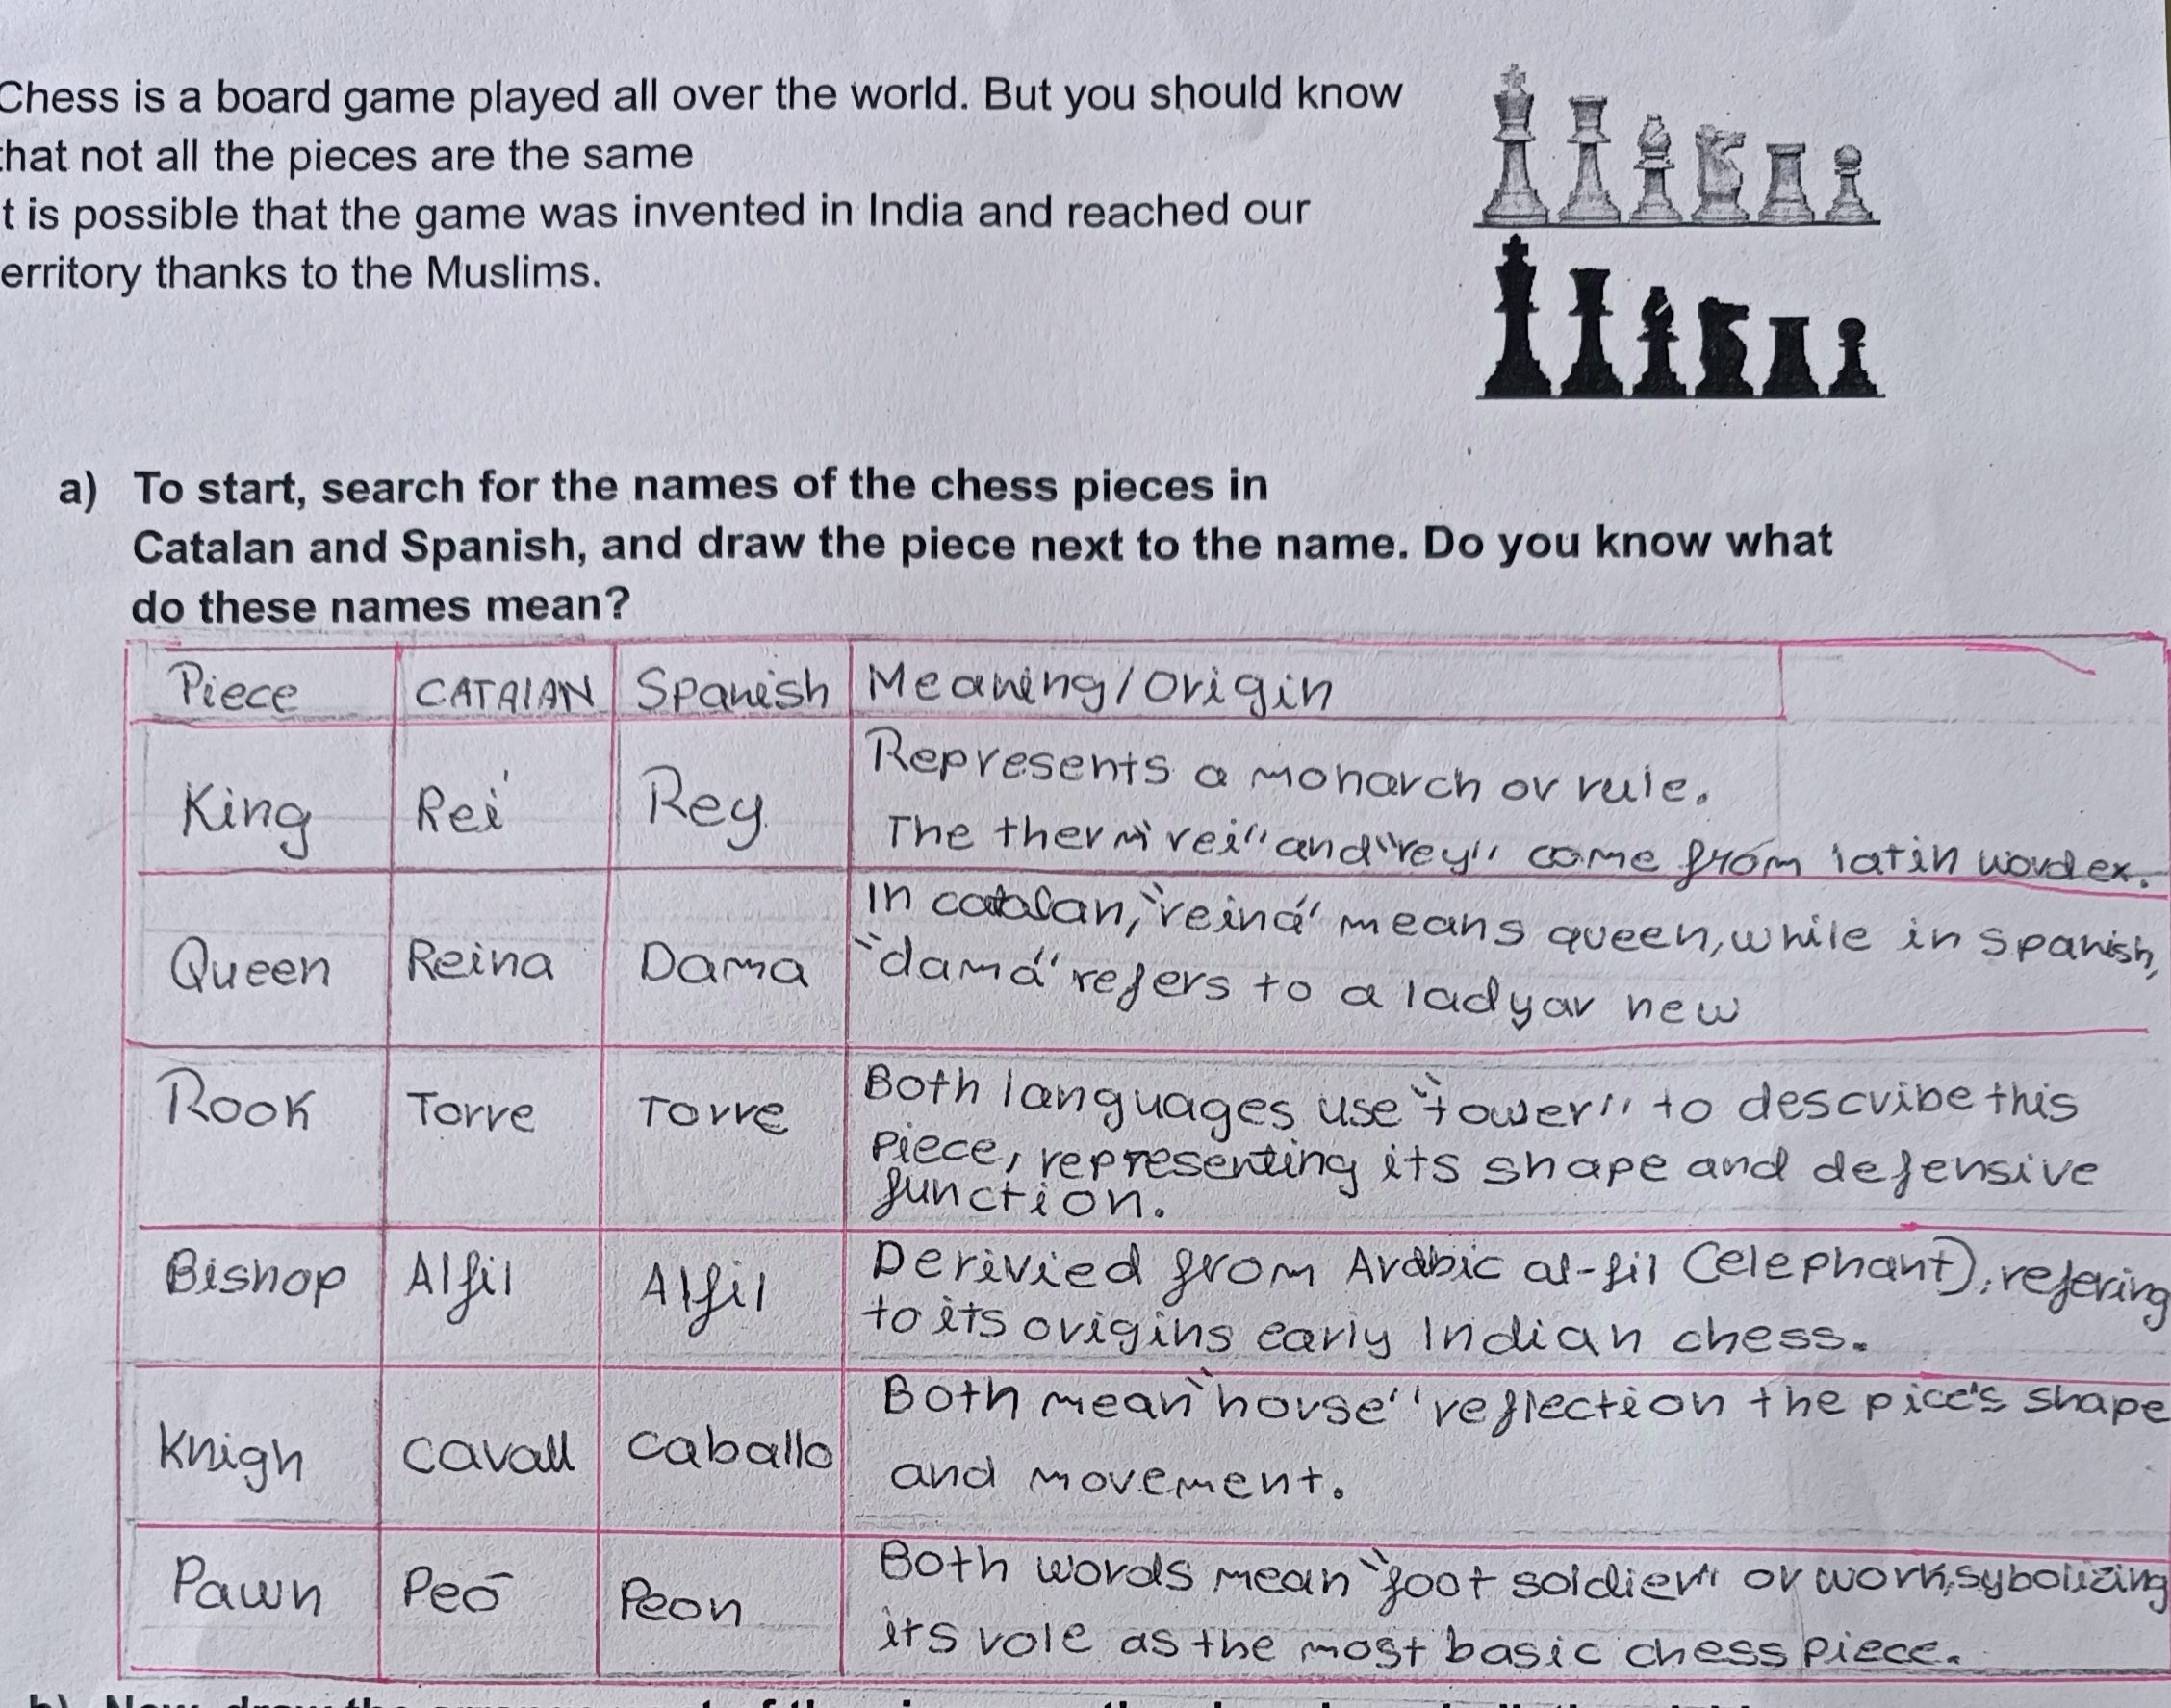 Chess is a board game played all over the world. But you should know
that not all the pieces are the same
t is possible that the game was invented in India and reached our
erritory thanks to the Muslims.
a) To start, search for the names of the chess pieces in
Catalan and Spanish, and draw the piece next to the name. Do you know what
do these names mean?
Piece CATALAN Spanish Meaning/Origin
King Rei Rey Represents a monarch or rule.
The therm "rei" and "rey" come from latin word ex.
Queen Reina Dama In catalan, "reina" means queen, while in spanish,
"dama" refers to a lady or new
Rook Torre Torre Both languages use "tower" to describe this
piece, representing its shape and defensive
function.
Bishop Alfil Alfil Derivied from Arabic al-fil (elephant), refering
to its origins early Indian chess.
Knigh cavall caballo Both mean "horse" reflection the pice's shape
and movement.
Pawn Peō Peon Both words mean "foot soldier" or work, sybolizing
its role as the most basic chess piece.